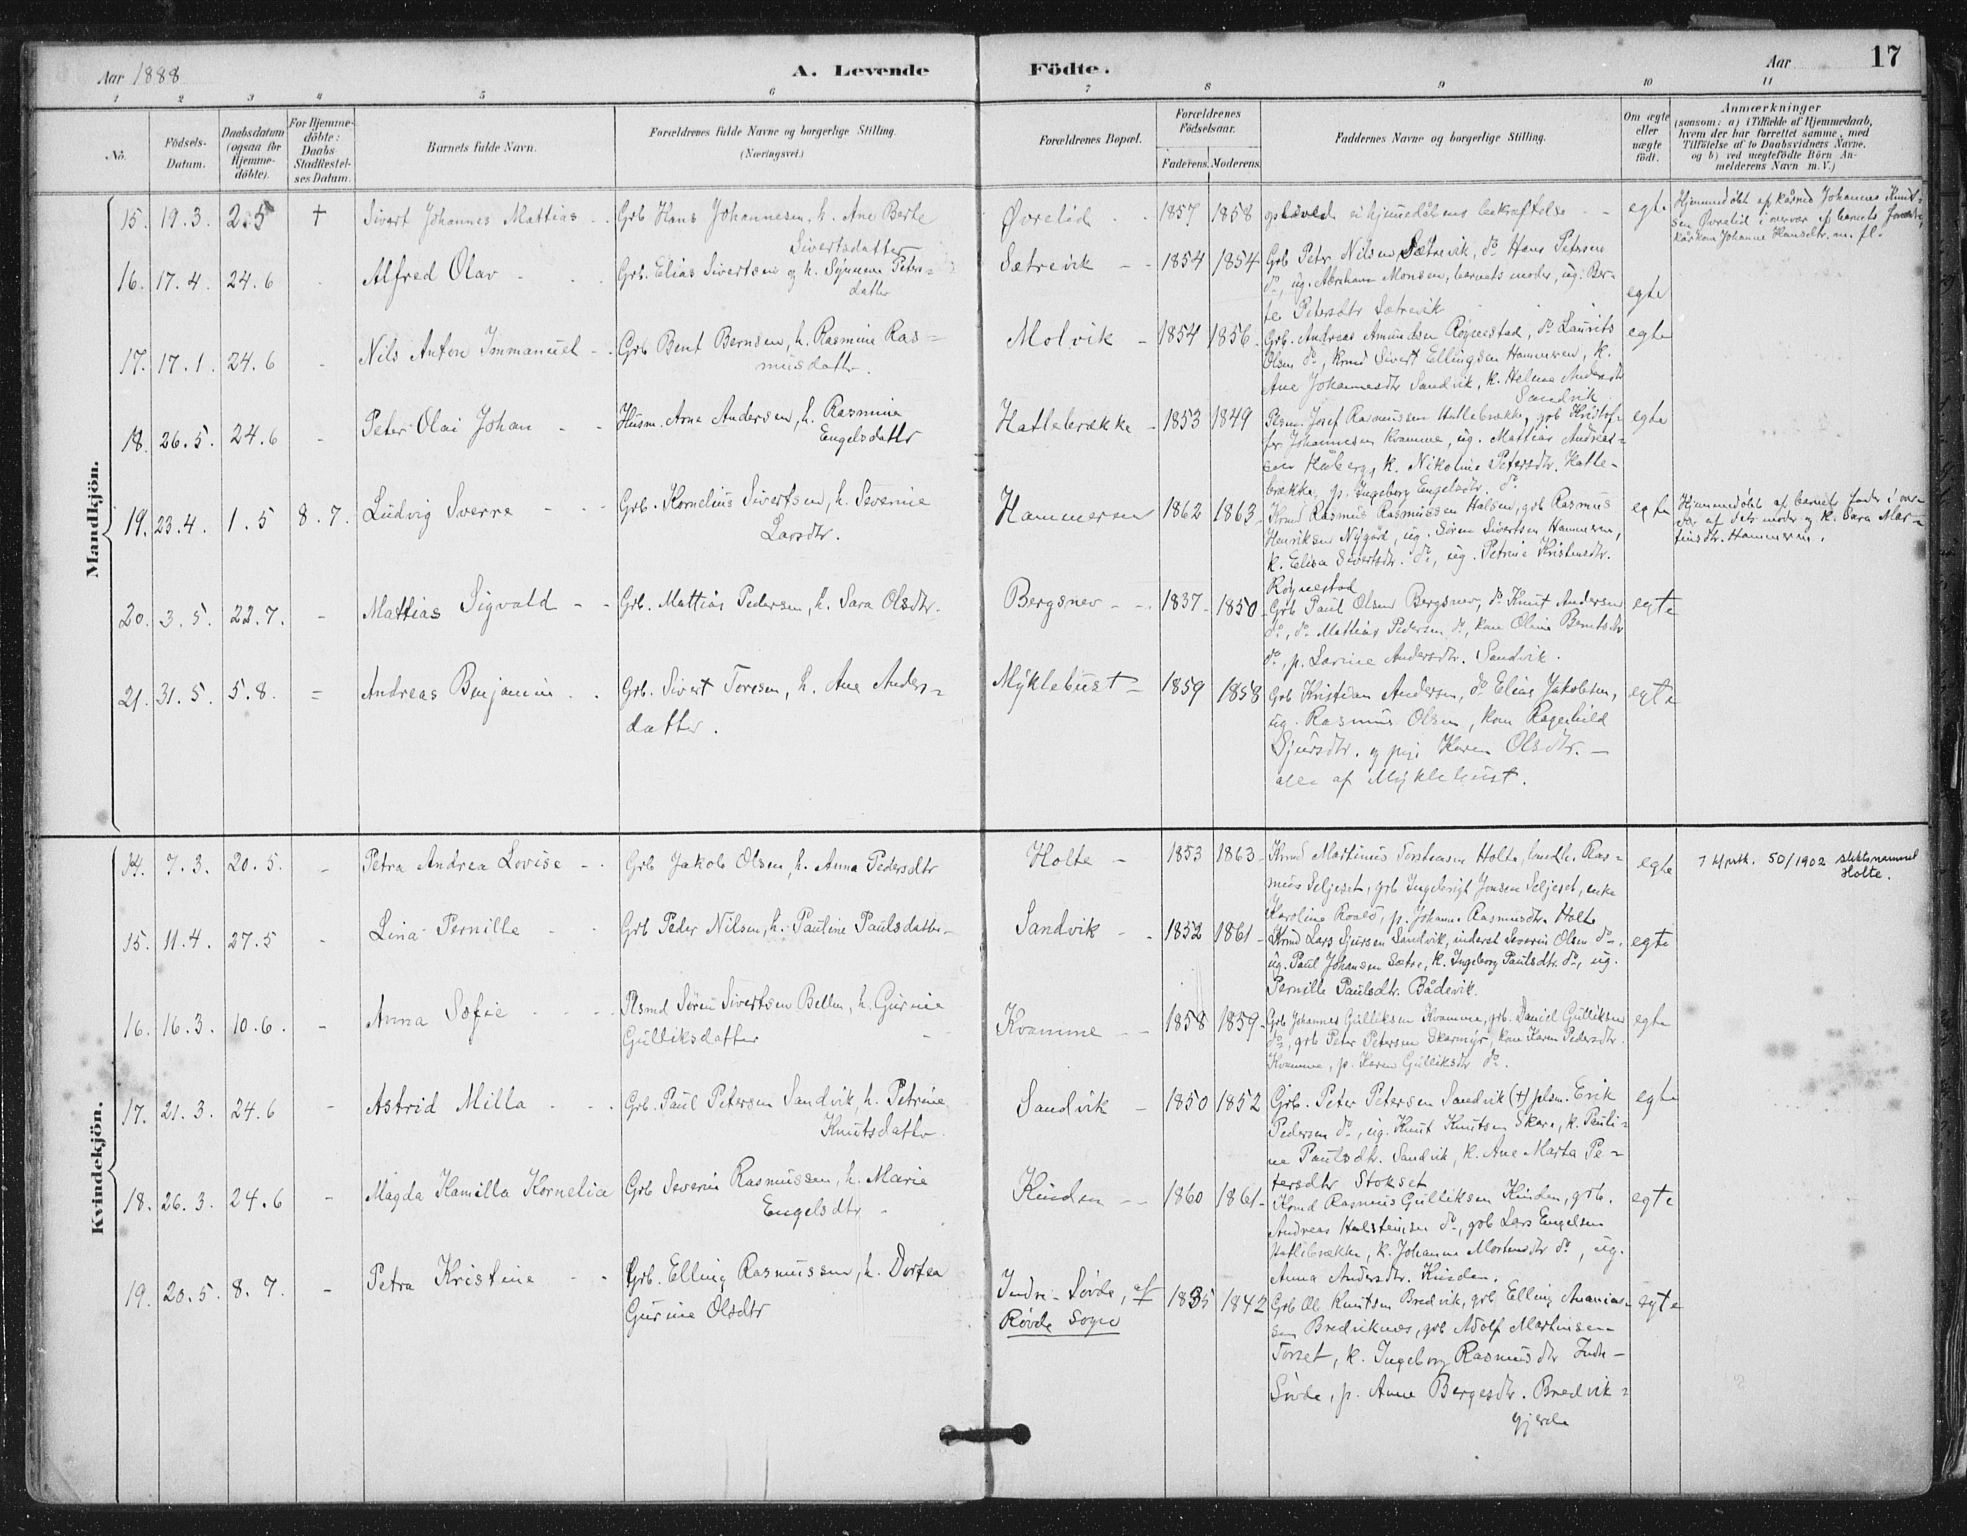 Aar 1888
A. Levende Födte.
Aar 17
1 2 3 4 5 6 7 8 9 10 11
No.
Födsels-
Datum.
Daabsdatum
(ogsaa for
Hjemme-
döbte).
For Hjemme-
döbte:
Daabs-
Stadfæstel-
ses Datum.
Barnets fulde Navn.
Forældrenes fulde Navne og borgerlige Stilling.
(Næringsvei.)
Forældrenes Bopæl.
Forældrenes
Födselsaar.
Faderens. Moderens.
Faddernes Navne og borgerlige Stilling.
Om ægte
eller
uægte
födt.
Anmærkninger
(saasom: a) i Tilfælde af Hjemmedaab,
hvem der har forrettet samme, med
Tilföielse af to Daabsvidners Navne,
og b) ved uægtefödte Börn An-
melderens Navn m. V.)
Mandkjön.
15. 19.3. 2.5 + Sivert Johannes Mattias Grb Hans Johannesen, h. Ane Berte
Sivertsdatter
Øvrelid 1857 1858
egte
Hjemmedöbt af kårmd Johannes Knut-
sen Øvrelid i nærvær af barnets
kårkon Johanne Hansdtr. m. fl.
16. 17.4. 24.6 Alfred Olav Grb. Elias Sivertsen og h. Synneve Peters-
datter
Sætrevik 1854 1854
Grb Peter Nilsen Sætrevik, do Hans Petersen
do, ug. Abraham Monsen, barnets moder, ug. Ber-
te Petersdtr Sætrevik
egte
17. 17.1. 24.6 Nils Anton Immanuel Grb Bent Berntsen, h. Rasmine Ras=
musdatter.
Molvik 1854 1856
Grb. Andreas Amundsen Røynestad, do Laurits
Olsen do, kmd Sivert Ellingsen Hammeren, k.
Ane Johannesdtr Sandvik, k. Helene Andersdtr
Sandvik
egte
18. 26.5. 24.6 Peter Olai Johan Husm. Arne Andersen, h. Rasmine
Engelsdattr
Hatlebrække 1853 1849
Plsm. Josef Rasmussen Hatlebrække, grb Kristof-
fer Johannesen Kvamme, ug. Mattias Andreas=
sen Haberg, k. Nikoline Petersdtr. Hatle-
brække, p. Ingeborg Engelsdtr. do
egte
19. 23.4. 1.5 8.7. Ludvig Sverre Grb. Kornelius Sivertsen, h. Severine
Larsdtr.
Hammeren 1862 1863
Kmd Rasmus Rasmussen Halsen, grb Rasmus
Henriksen Nygård, ug. Sören Sivertsen Hammeren,
k. Elisa Sivertsdtr. do, ug. Petrine Kristensdtr.
Røynestad
egte
Hjemmedöbt af barnets fader i nær-
vær af dets moder og k. Sara Mar-
tinsdtr. Hammeren.
20. 3.5. 22.7. Mattias Sigvald Grb. Mattias Pedersen, h. Sara Olsdtr.
Bergsnev 1837 1850
Grb Paul Olsen Bergsnev, do Knut Andersen
do, do Mattias Pedersen do, kone Oline Berntsdtr
do, p. Lavine Andersdtr. Sandvik.
egte
21. 31.5 5.8. Andreas Benjamin Grb. Sivert Toresen, h. Ane Anders=
datter.
Myklebust 1859 1858
Grb Kristian Andersen, do Elias Jakobsen,
ug. Rasmus Olsen, kone Ragnhild
Sjursdtr. og pige Karen Olsdtr.
alle af Myklebust.
egte
Kvindekjön.
14. 7.3. 20.5. Petra Andrea Lovise Grb Jakob Olsen, h. Anna Pedersdtr
Holte 1853 1863
Kmd Martinus Torstensen Holte, landh. Ras=
mus Seljeset, grb Ingebrigt Jonsen Seljeset, enke
Karoline Roald, p. Johanne Rasmusdtr Holte
egte
50/1902 slektsnamnet
Holte.
15. 11.4. 27.5 Lina Pernille Grb Peder Nilsen, h. Pauline Paulsdatter
Sandvik 1852 1861
Kmd Lars Sjursen Sandvik, inderst Severin Olsen do,
ug. Paul Johansen Sætre, k. Ingeborg Paulsdtr. do, ug.
Pernille Paulsdtr. Bådsvik.
egte
16. 16.3. 10.6. Anna Sofie Plsmd Sören Sivertsen Bellen, h. Gurine
Gulliksdatter
Kvamme 1858 1859
Grb Johannes Gulliksen Kvamme, grb. Daniel Gulliksen
do, grb Peter Petersen Skarmyr, kone Karen Pedersdtr.
Kvamme, p. Karen Gulliksdtr do.
egte
17. 21.3. 24.6 Astrid Milla Grb. Paul Petersen Sandvik, h. Petrine
Knutsdatter
Sandvik 1850 1852
Grb. Peter Petersen Sandvik (+) plsm. Erik
Pedersen do, ug. Knut Knutsen Skare, k. Pauli-
ne Paulsdtr. Sandvik, k. Ane Marta Pe-
tersdtr Stokset
egte
18. 26.3. 24.6 Magda Kamilla Kornelia Grb Severin Rasmussen, h. Marie
Engelsdtr
Kinden 1860 1861
Kmd Rasmus Gulliksen Kinden, grb.
Andreas Halstensen do, grb Lars Engelsen
Hatlebrække, k. Johanne Mortensdtr do, ug.
Anna Andersdtr. Kinden.
egte
19. 20.5. 8.7. Petra Kristine Grb. Elling Rasmussen, h. Dortea
Gurine Olsdtr
Indre-Søvde, af
Røvde Sogn
1835 1842
Grb Ole Knutsen Bredvik, grb Elling Ananias-
sen Brediknes, grb Adolf Martinsen
Torset, k. Ingeborg Rasmusdtr Indre-
Søvde, p. Anne Bergesdtr. Bredvik=
gjerde
egte